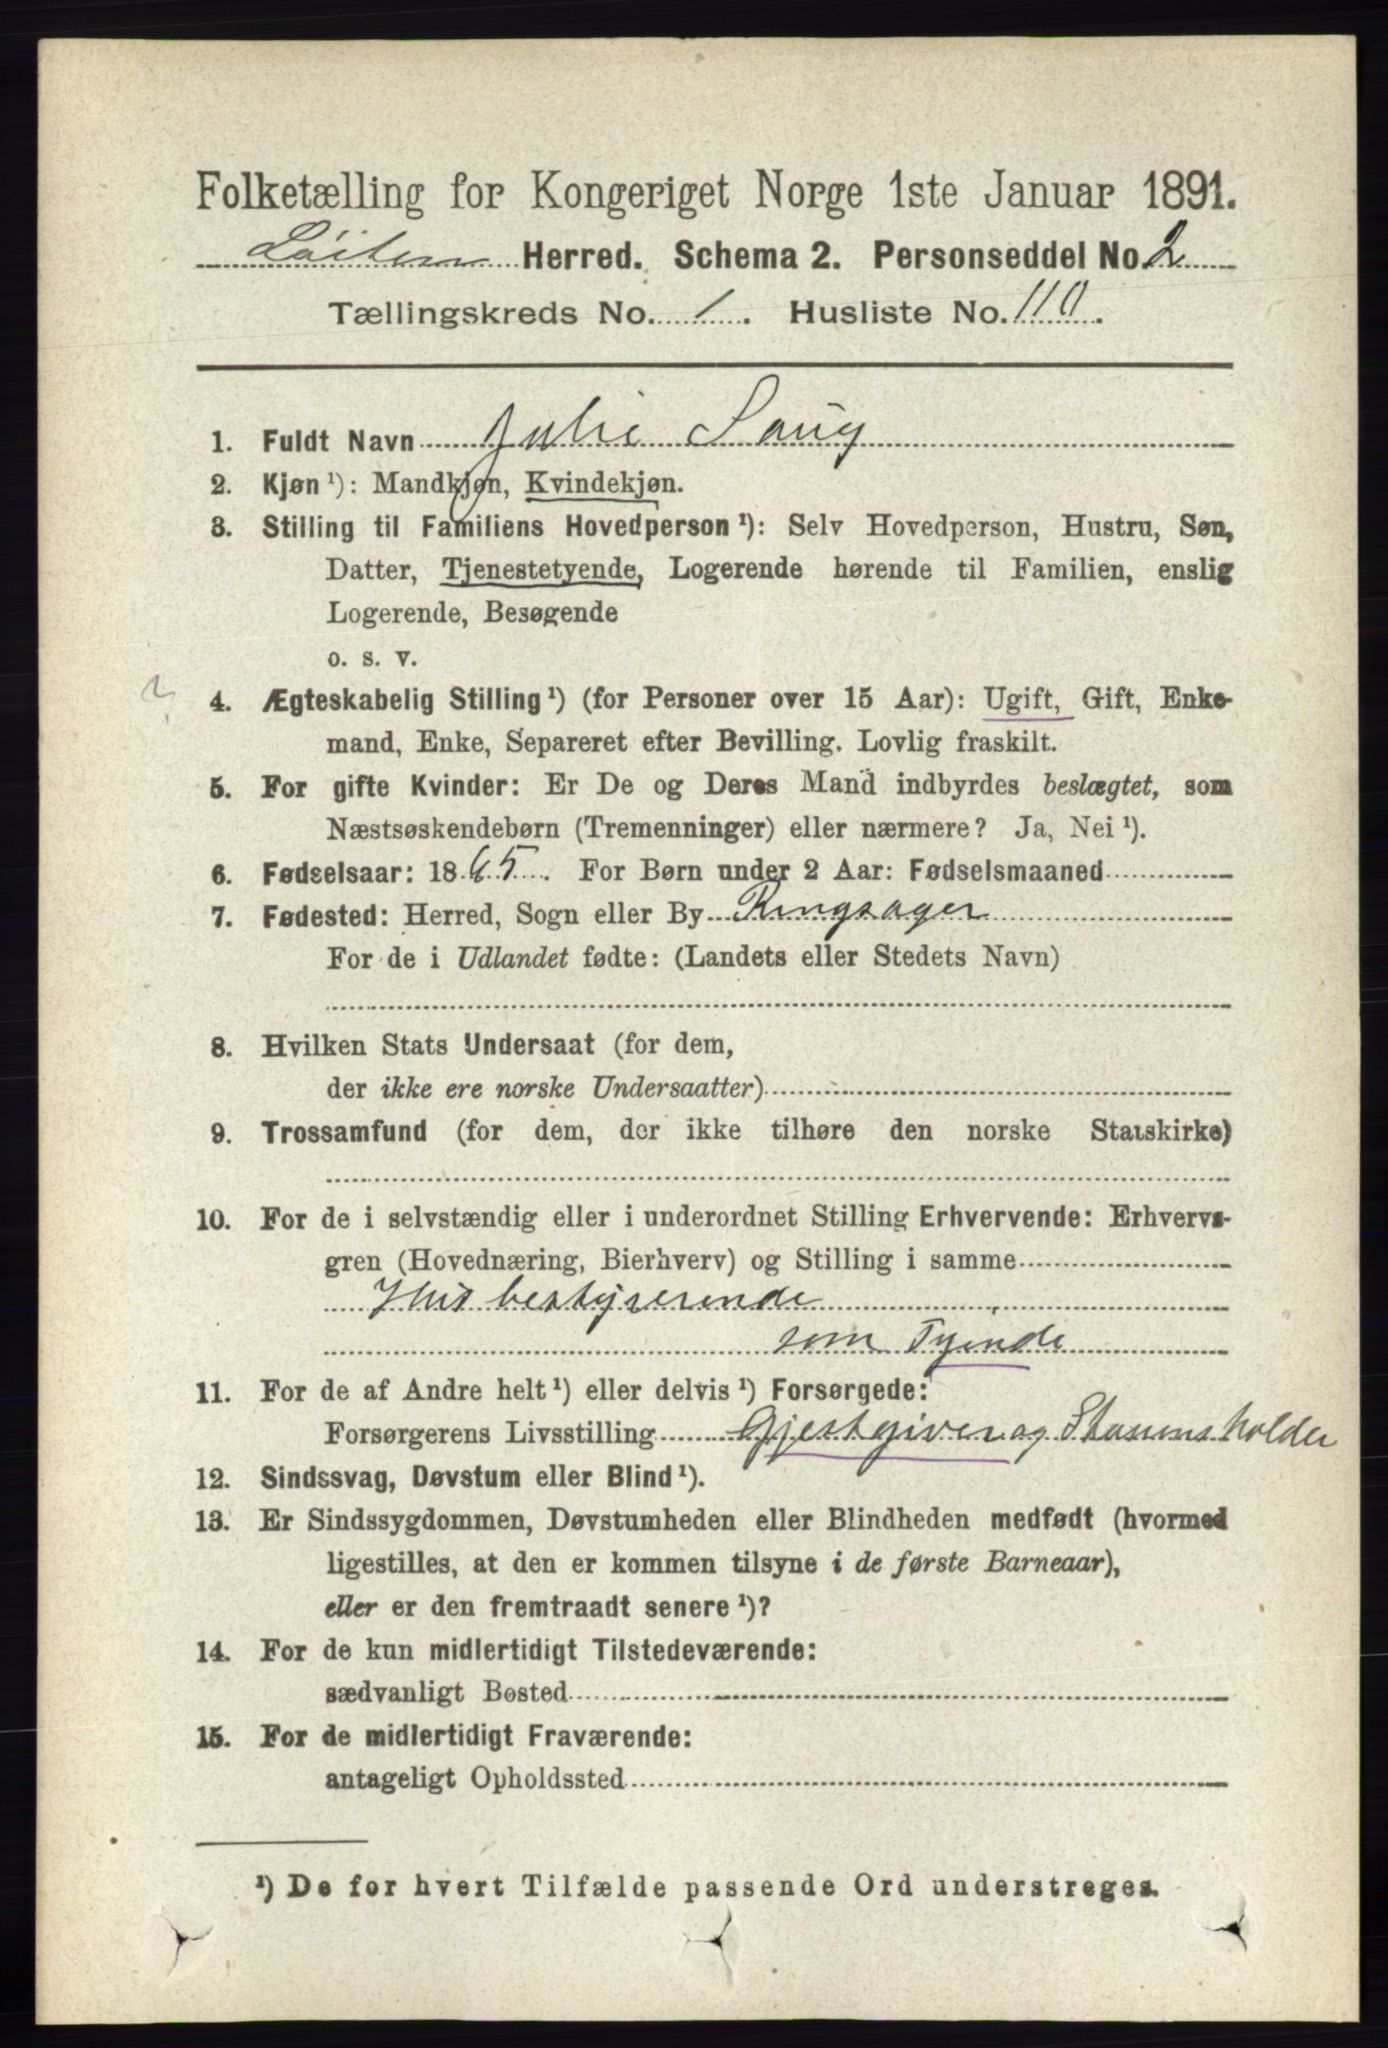 Folketælling for Kongeriget Norge 1ste Januar 1891.
Løiten Herred. Schema 2. Personseddel No. 2
Tællingskreds No. 1. Husliste No. 110.
1. Fuldt Navn Julie Saug
2. Kjøn ¹): Mandkjøn, Kvindekjøn.
3. Stilling til Familiens Hovedperson ¹): Selv Hovedperson, Hustru, Søn,
Datter, Tjenestetyende, Logerende hørende til Familien, enslig
Logerende, Besøgende
o. s. v.
4. Ægteskabelig Stilling ¹) (for Personer over 15 Aar): Ugift, Gift, Enke-
mand, Enke, Separeret efter Bevilling. Lovlig fraskilt.
5. For gifte Kvinder: Er De og Deres Mand indbyrdes beslægtet, som
Næstsøskendebørn (Tremenninger) eller nærmere? Ja, Nei ¹).
6. Fødselsaar: 1865. For Børn under 2 Aar: Fødselsmaaned
7. Fødested: Herred, Sogn eller By Ringsager
For de i Udlandet fødte: (Landets eller Stedets Navn)
8. Hvilken Stats Undersaat (for dem,
der ikke ere norske Undersaatter)
9. Trossamfund (for dem, der ikke tilhøre den norske Statskirke)
10. For de i selvstændig eller i underordnet Stilling Erhvervende: Erhvervs-
gren (Hovednæring, Bierhverv) og Stilling i samme
Husbestyrerende
som Tyende
11. For de af Andre helt ¹) eller delvis ¹) Forsørgede:
Forsørgerens Livsstilling Gjestgiver og Skasensholder
12. Sindssvag, Døvstum eller Blind ¹).
13. Er Sindssygdommen, Døvstumheden eller Blindheden medfødt (hvormed
ligestilles, at den er kommen tilsyne i de første Barneaar),
eller er den fremtraadt senere ¹)?
14. For de kun midlertidigt Tilstedeværende:
sædvanligt Bosted
15. For de midlertidigt Fraværende:
antageligt Opholdssted
¹) De for hvert Tilfælde passende Ord understreges.